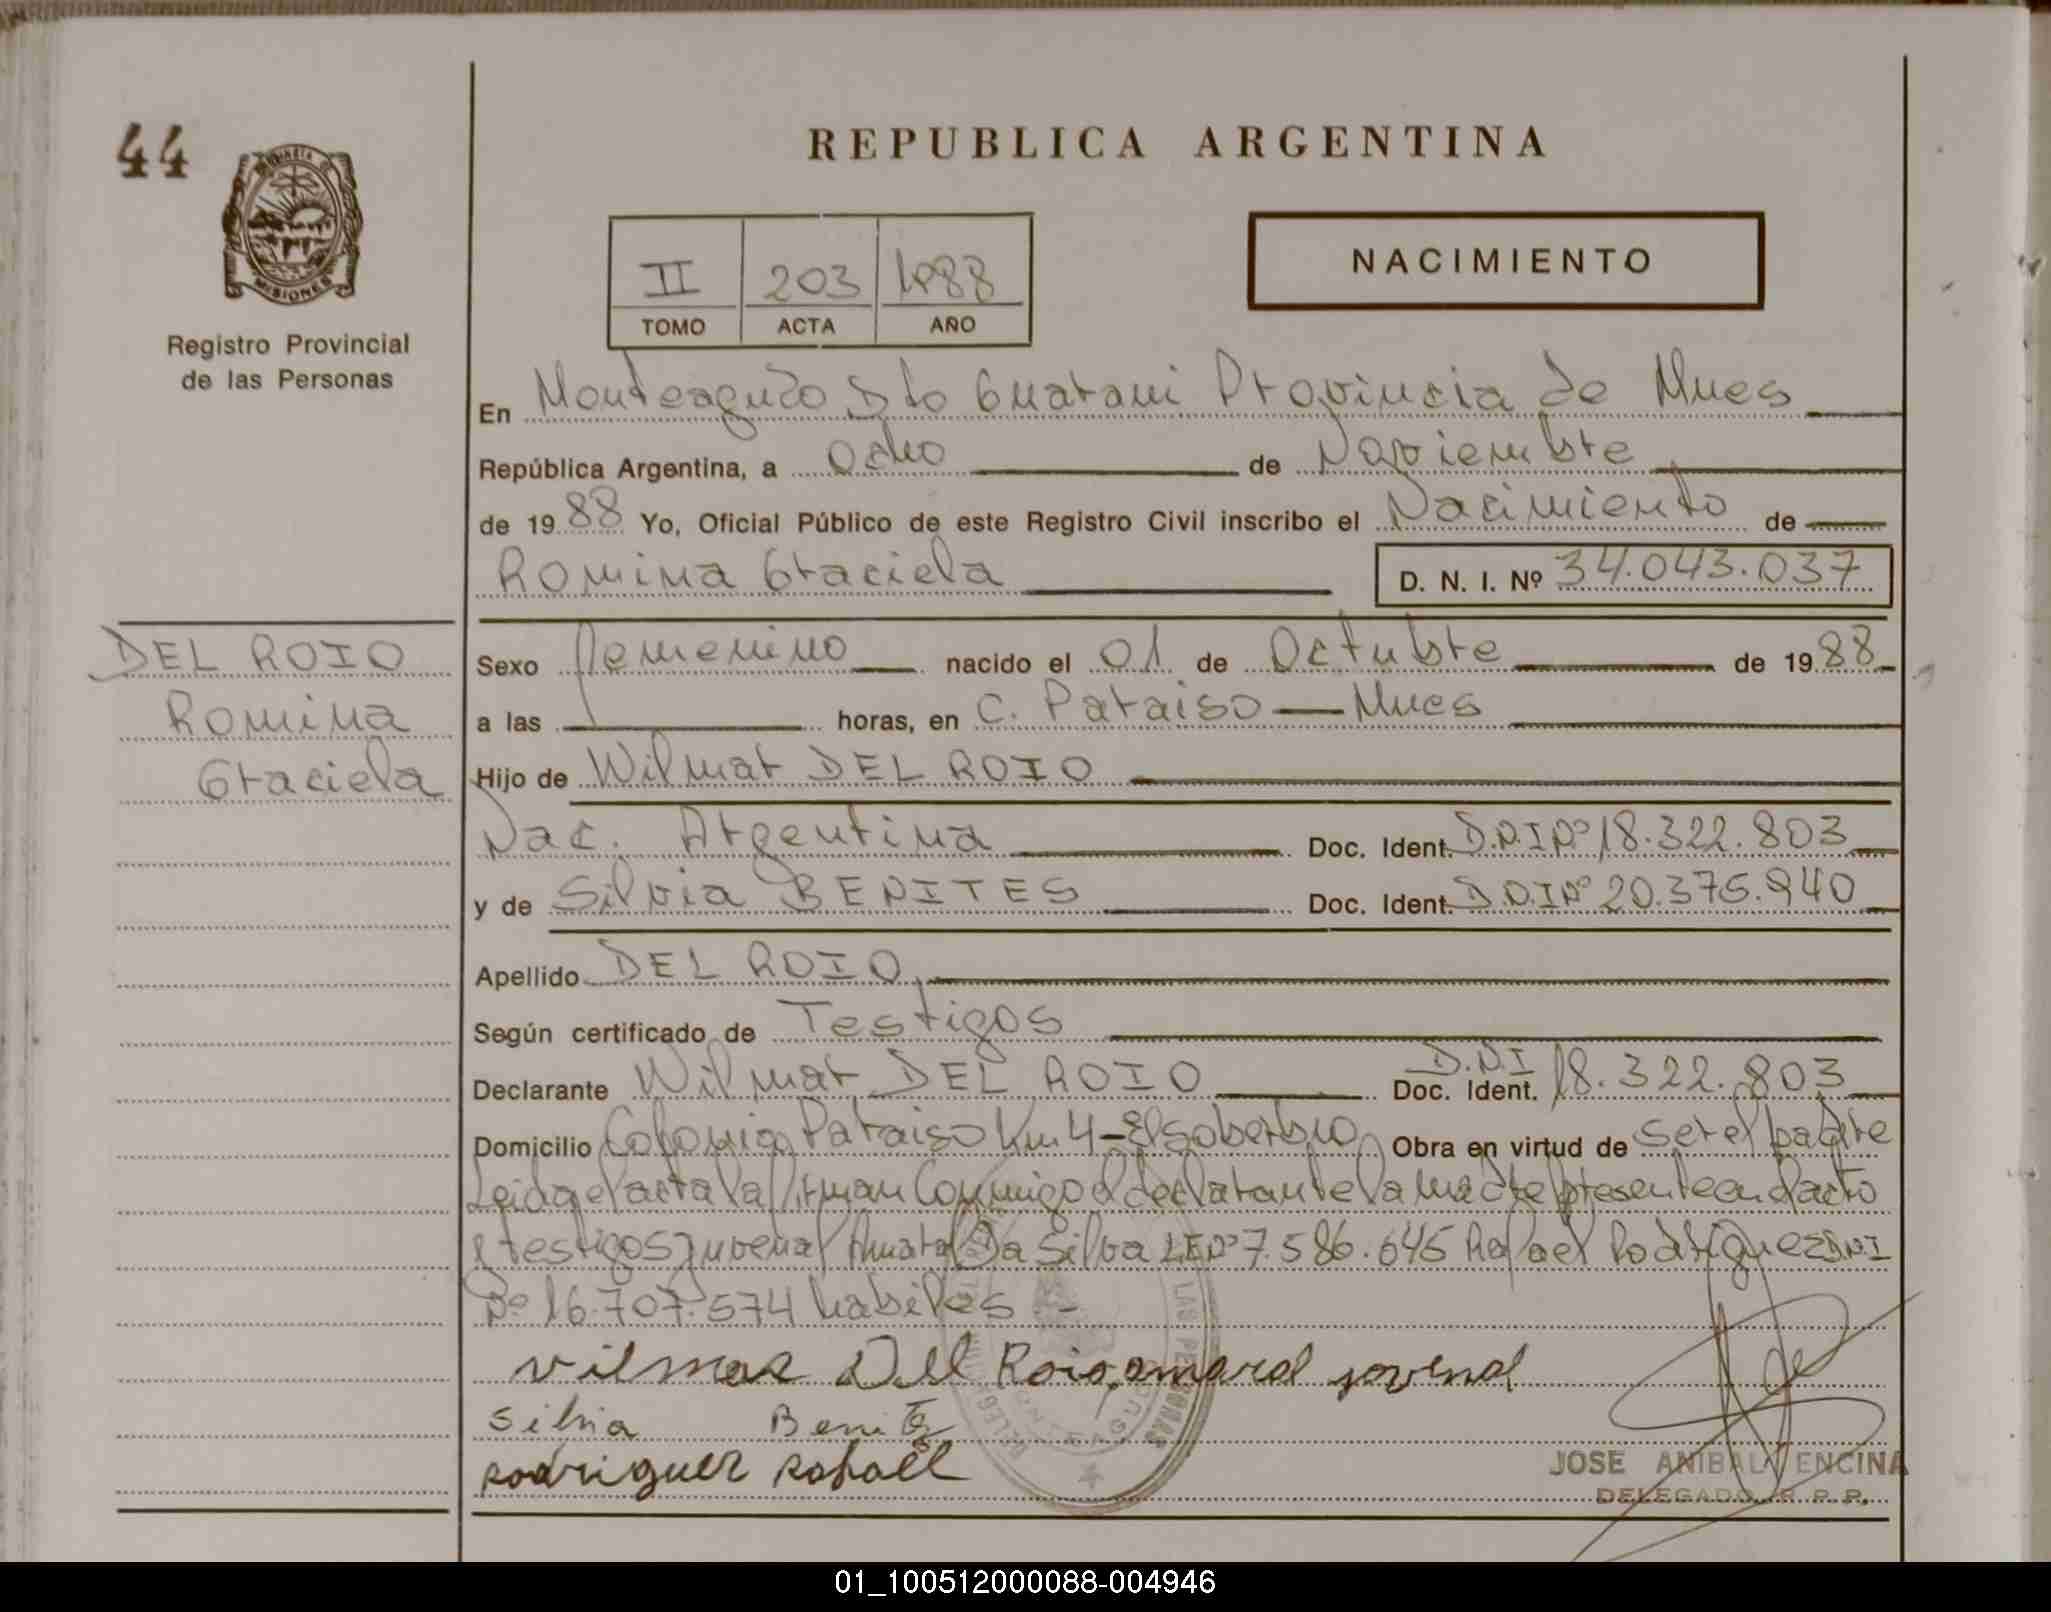 44
REPUBLICA ARGENTINA
MISIONES
Registro Provincial
de las Personas
II 203 1988
TOMO ACTA AÑO
NACIMIENTO
En Monteagudo Dto Guarani Provincia de Mnes
República Argentina, a Ocho de Noviembre
de 1988 Yo, Oficial Público de este Registro Civil inscribo el Nacimiento de
Romina Graciela D. N. I. Nº 34.043.037
DEL ROIO
Romina
Graciela
Sexo femenino nacido el 01 de Octubre de 1988
a las horas, en C. Paraiso — Mnes
Hijo de Wilmar DEL ROIO
Nac. Argentina Doc. Ident. D.N.I Nº 18.322.803
y de Silvia BENITES Doc. Ident. D.N.I Nº 20.375.940
Apellido DEL ROIO
Según certificado de Testigos
Declarante Wilmar DEL ROIO Doc. Ident. D.N.I 18.322.803
Domicilio Colonia Paraiso Km 4 - El Soberbio Obra en virtud de ser el padre
Leida el acta la firman Conmigo el declarante la madre presente en el acto
y testigos Juvenal Amaral Da Silva LE Nº 7.586.645 Rafael Rodriguez D.N.I
Nº 16.707.574 habiles -
vilmar Del Roio amaral jovenal
Silvia Benite
Rodriguez Rafael
LAS PERSONAS
JOSE ANIBAL ENCINA
DELEGADO R. P. P.
01_100512000088-004946